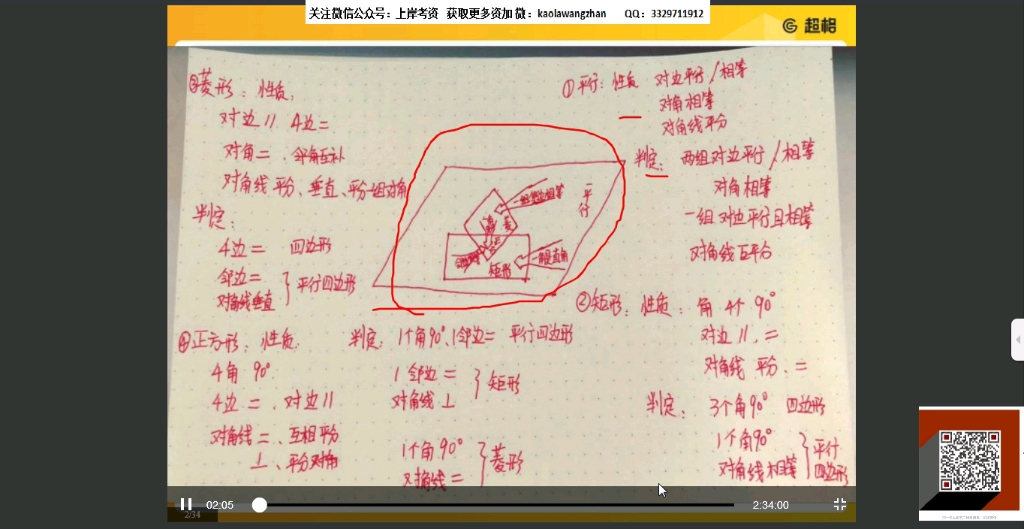 关注微信公众号：上岸考资 获取更多资加微：kaolawangzhan QQ：3329711912
超格
③菱形：性质：
对边// 4边=
对角=、邻角互补
对角线平分、垂直、平分一组对角
判定：
4边= 四边形
邻边=
对角线垂直 } 平行四边形
①平行：性质 对边平行/相等
对角相等
对角线平分
判定： 两组对边平行/相等
对角相等
一组对边平行且相等
对角线互平分
平行
一组邻边相等
矩形
一个直角
②矩形：性质：角4个90°
对边//、=
对角线 平分、=
判定： 3个角90° 四边形
1个角90°
对角线相等 } 平行四边形
④正方形：性质：
4角 90°
4边=、对边//
对角线=、互相平分
⊥、平分对角
判定：1个角90°、1邻边= 平行四边形
1邻边=
对角线⊥ } 矩形
1个角90°
对角线= } 菱形
02:05
2:34:00
2/34